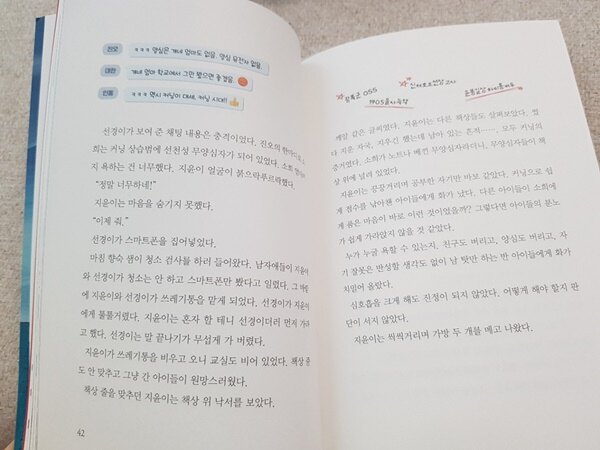 진오 ㅋㅋㅋ 양심은 걔네 엄마도 없음. 양심 유전자 없음.
태완 걔네 엄마 학교에서 그만 봤으면 좋겠음.
민종 ㅋㅋㅋ 역시 커닝이 대세. 커닝 시대!!
선경이가 보여 준 채팅 내용은 충격적이었다. 진오의 한마디로 소
희는 커닝 상습범에 선천성 무양심자가 되어 있었다. 소희 엄마까
지 욕하는 건 너무했다. 지윤이 얼굴이 붉으락푸르락했다.
“정말 너무하네!”
지윤이는 마음을 숨기지 못했다.
“이제 줘.”
선경이가 스마트폰을 집어넣었다.
마침 향숙 샘이 청소 검사를 하러 들어왔다. 남자애들이 지윤이
와 선경이가 청소는 안 하고 스마트폰만 봤다고 일렀다. 그 바람
에 지윤이와 선경이가 쓰레기통을 맡게 되었다. 선경이가 지윤이
에게 툴툴거렸다. 지윤이는 혼자 할 테니 선경이더러 먼저 가라
고 했다. 선경이는 말 끝나기가 무섭게 가 버렸다.
지윤이가 쓰레기통을 비우고 오니 교실도 비어 있었다. 책상 줄
도 안 맞추고 그냥 간 아이들이 원망스러웠다.
책상 줄을 맞추던 지윤이는 책상 위 낙서를 보았다.
42
광복군 OSS
1905 을사늑약
깨알 같은 글씨였다. 지윤이는 다른 책상들도 살펴보았다. 썼
다 지운 자국, 지우긴 했는데 남아 있는 흔적……. 모두 커닝의
증거였다. 소희가 노트나 베낀 무양심자라더니, 무양심자들이 책
상 위에 널려 있었다.
지윤이는 끙끙거리며 공부한 자기만 바보 같았다. 커닝으로 쉽
게 점수를 남아챈 아이들에게 화가 났다. 다른 아이들이 소희에
게 품은 마음이 바로 이런 것이었을까? 그렇다면 아이들의 분노
가 쉽게 가라앉지 않을 것 같았다.
누가 누굴 욕할 수 있는지. 친구도 버리고, 양심도 버리고, 자
기 잘못은 반성할 생각도 없이 남 탓만 하는 반 아이들에게 화가
치밀어 올랐다.
심호흡을 크게 해도 진정이 되지 않았다. 어떻게 해야 할지 판
단이 서지 않았다.
지윤이는 씩씩거리며 가방 두 개를 메고 나왔다.